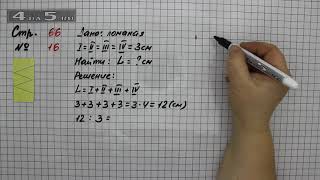 4 на 5.ru
Стр. 66
№ 16
Дано: ломаная
I = II = III = IV = 3см
Найти: L = ? см
Решение:
L = I + II + III + IV
3+3+3+3 = 3·4 = 12 (см)
12 : 3 =